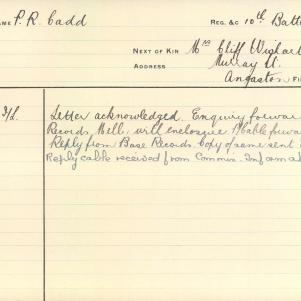 AME P. R. Cadd
REG. &C 10th Batt
NEXT OF KIN Mrs Cliff
ADDRESS Murray St.
Angaston
Letter acknowledged. Enquiry forwar
Records Melb. with enclosure. Cable forwar
Reply from Base Records. Copy of same sent
Reply cable received from Commin. Informat